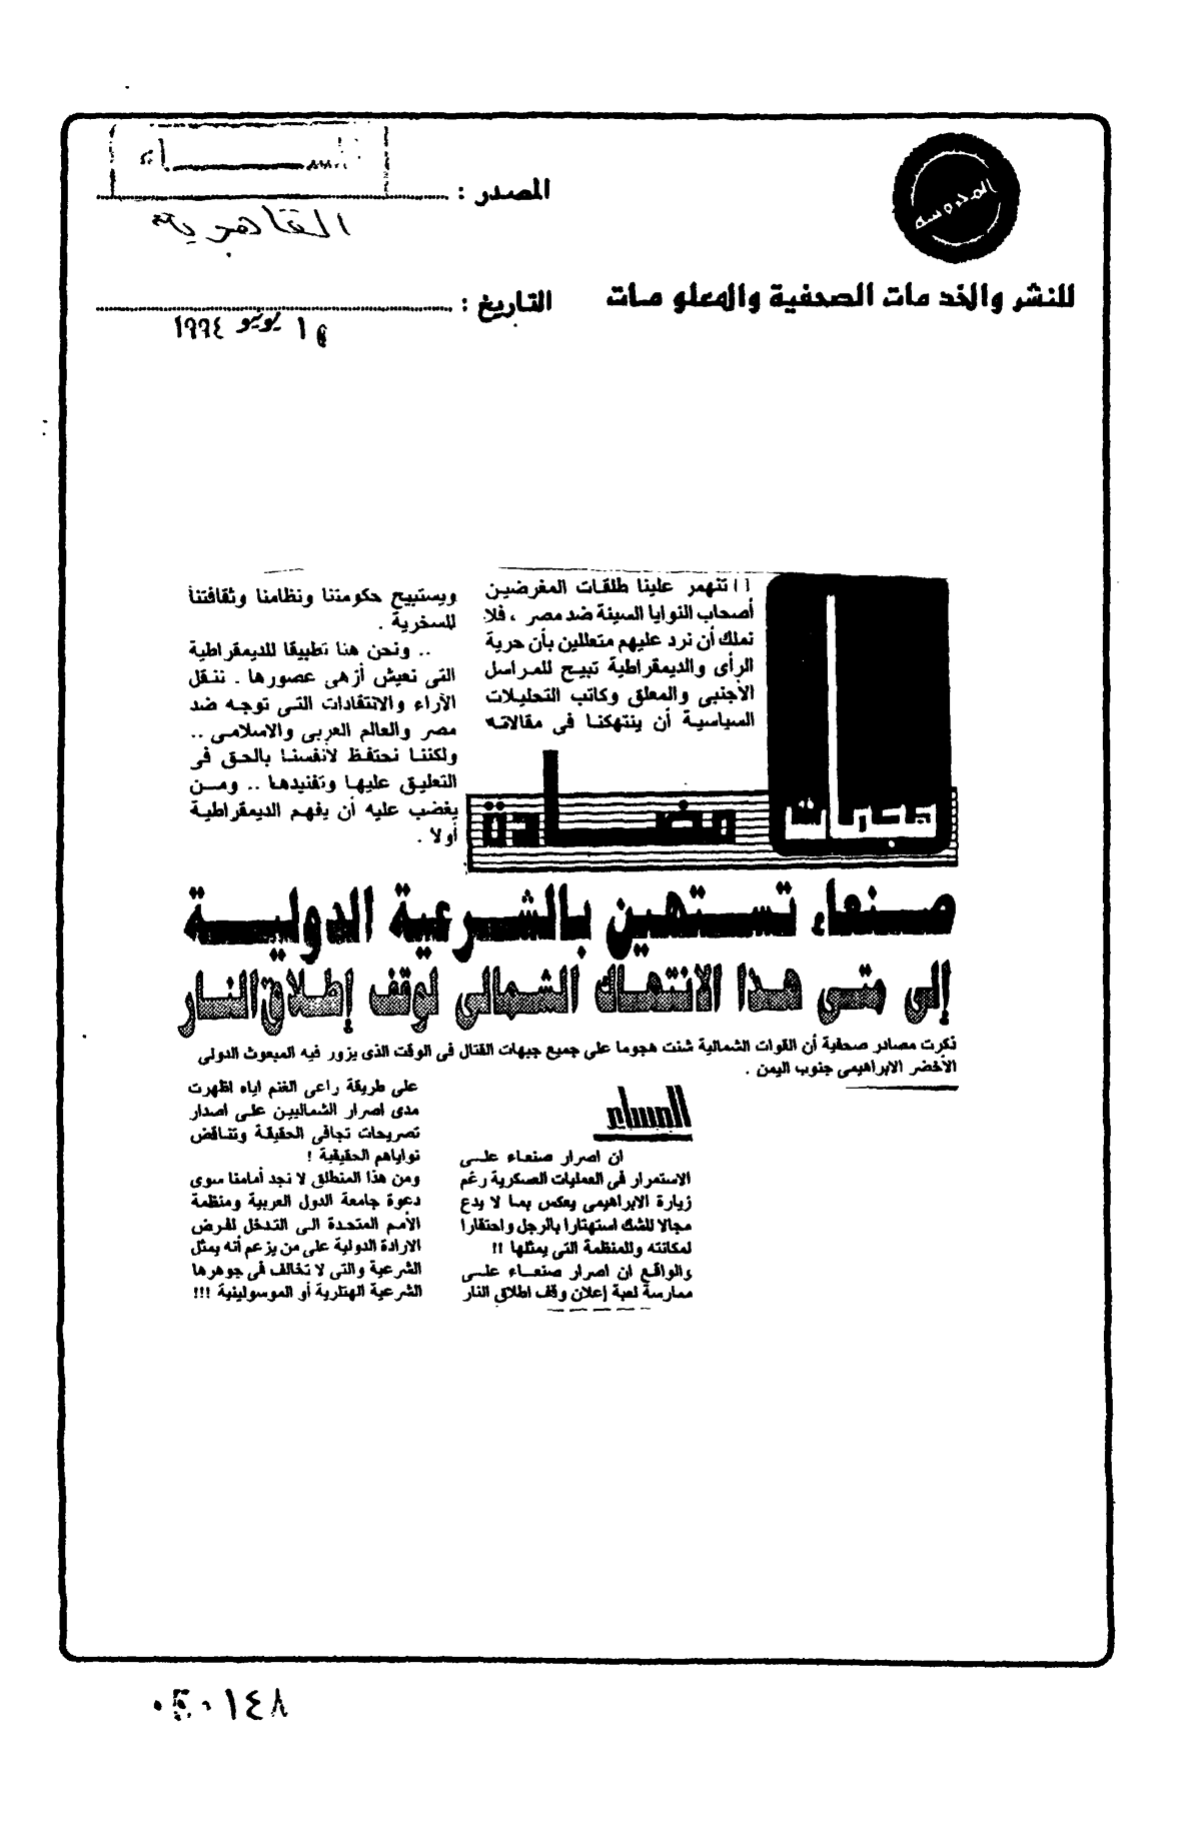 المساء
المصدر :
القاهرية
المحروسة
للنشر والخدمات الصحفية والمعلومات
التاريخ :
يونيو ١٩٩٤
تنهمر علينا طلقات المغرضين
أصحاب النوايا السيئة ضد مصر ، فلا
نملك أن نرد عليهم متعللين بأن حرية
الرأى والديمقراطية تبيح للمراسل
الأجنبى والمعلق وكاتب التحليلات
السياسية أن ينتهكنا فى مقالاته
ويستبيح حكومتنا ونظامنا وثقافتنا
للسخرية .
.. ونحن هنا تطبيقا للديمقراطية
التى نعيش أزهى عصورها . ننقل
الآراء والانتقادات التى توجه ضد
مصر والعالم العربى والاسلامى ..
ولكننا نحتفظ لأنفسنا بالحق فى
التعليق عليها وتفنيدها .. ومن
يغضب عليه أن يفهم الديمقراطية
أولا .
هجمات مضادة
صنعاء تستهين بالشرعية الدولية
إلى متى هذا الانتهاك الشمالى لوقف إطلاق النار
ذكرت مصادر صحفية أن القوات الشمالية شنت هجوما على جميع جبهات القتال فى الوقت الذى يزور فيه المبعوث الدولى
الأخضر الابراهيمى جنوب اليمن .
المساء
ان اصرار صنعاء على
الاستمرار فى العمليات العسكرية رغم
زيارة الابراهيمى يعكس بما لا يدع
مجالا للشك استهتارا بالرجل واحتقارا
لمكانته وللمنظمة التى يمثلها !!
والواقع ان اصرار صنعاء على
ممارسة لعبة إعلان وقف اطلاق النار
على طريقة راعى الغنم اياه اظهرت
مدى اصرار الشماليين على اصدار
تصريحات تجافى الحقيقة وتناقض
نواياهم الحقيقية !
ومن هذا المنطلق لا نجد أمامنا سوى
دعوة جامعة الدول العربية ومنظمة
الأمم المتحدة الى التدخل لفرض
الارادة الدولية على من يزعم أنه يمثل
الشرعية والتى لا تخالف فى جوهرها
الشرعية الهتلرية أو الموسولينية !!!